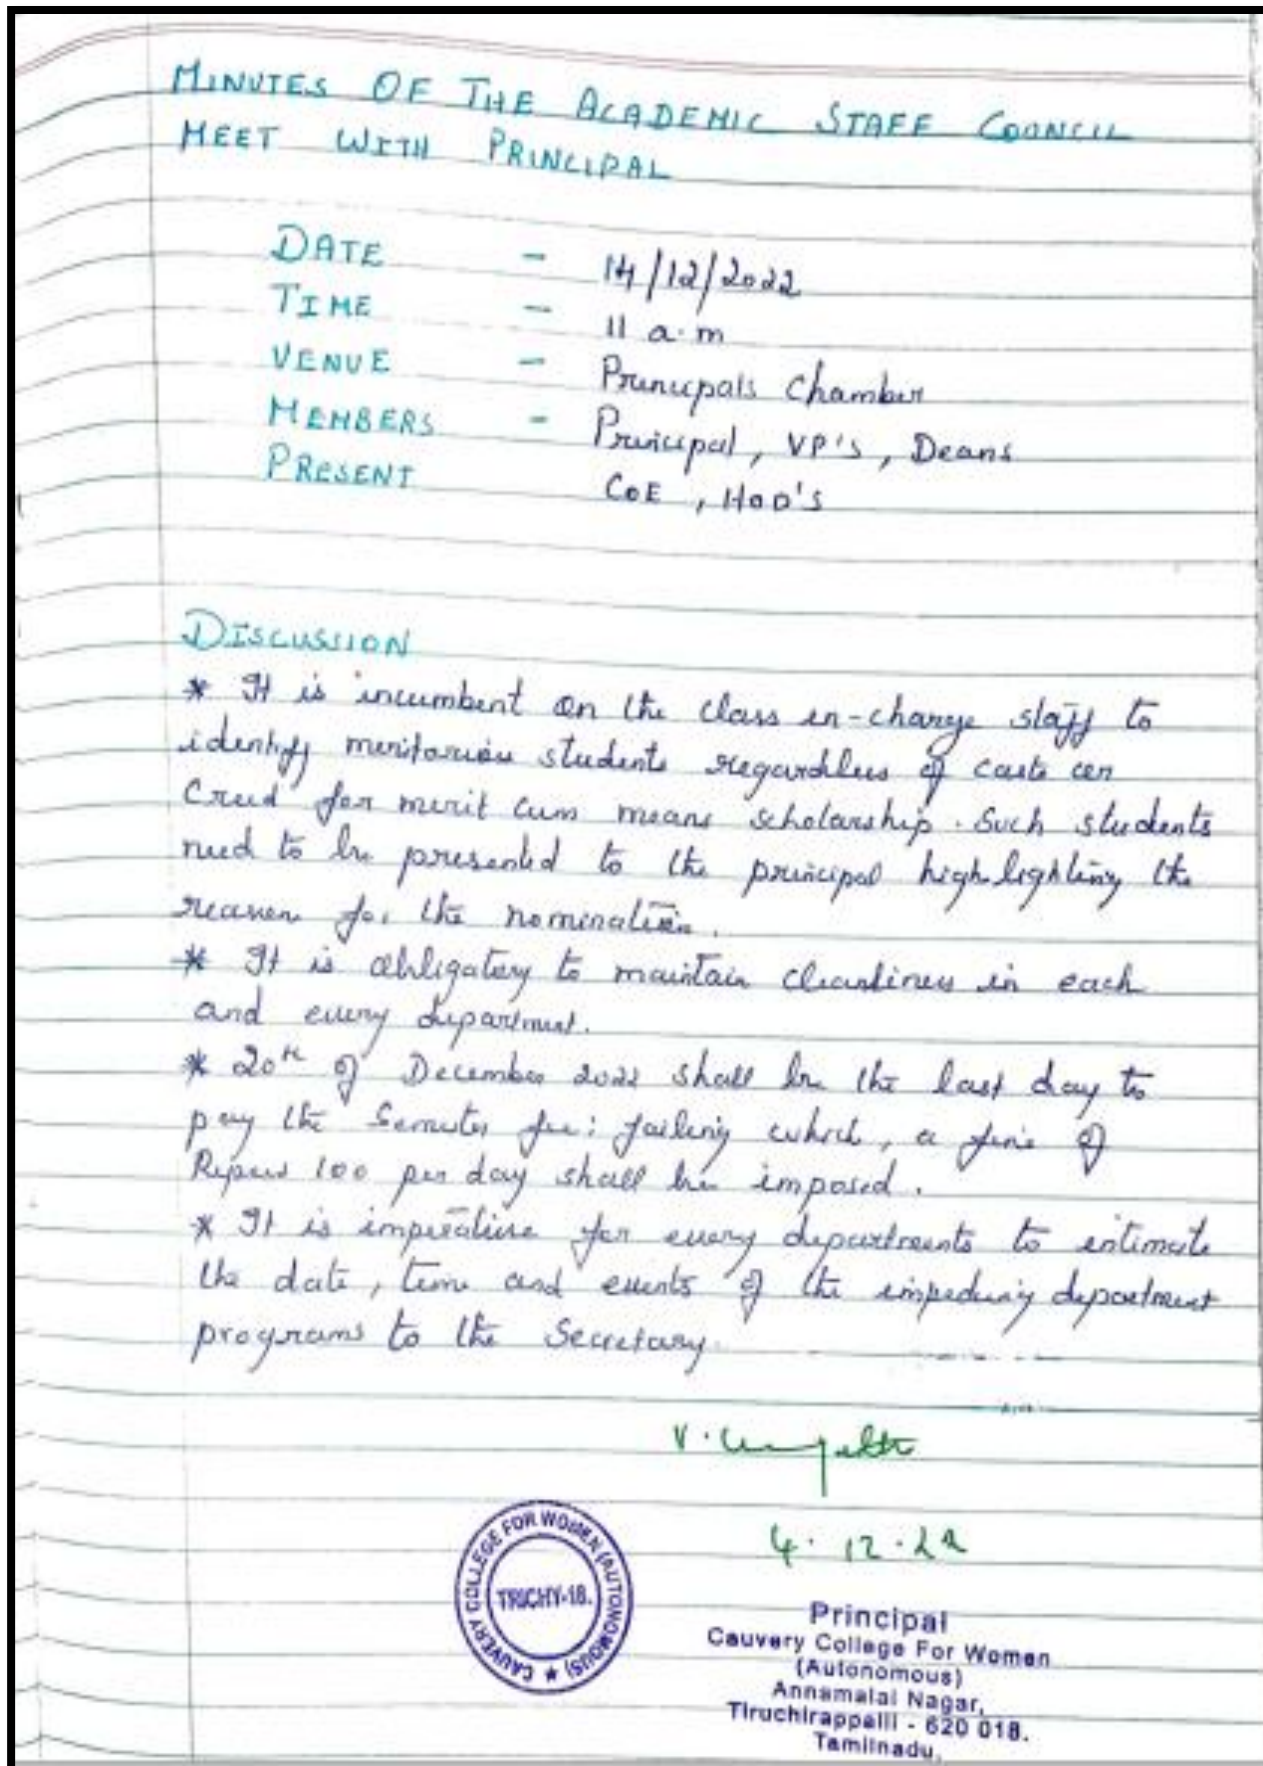 MINUTES OF THE ACADEMIC STAFF COUNCIL
MEET WITH PRINCIPAL
DATE - 14/12/2022
TIME - 11 a.m
VENUE - Principals Chamber
MEMBERS - Principal, VP's, Deans
PRESENT COE, HOD'S
DISCUSSION
* It is incumbent on the class in-charge staff to
identify meritorious students regardless of caste or
Creed for merit cum means scholarship. Such students
need to be presented to the principal highlighting the
reason for the nomination.
* It is obligatory to maintain cleanliness in each
and every department.
* 20th of December 2022 shall be the last day to
pay the Semester fee; failing which, a fine of
Rupees 100 per day shall be imposed.
* It is imperative for every departments to intimate
the date, time and events of the impeding department
programs to the Secretary.
V.
4.12.22
CAUVERY COLLEGE FOR WOMEN (AUTONOMOUS) ★
TRICHY-18.
Principal
Cauvery College For Women
(Autonomous)
Annamalai Nagar,
Tiruchirappalli - 620 018.
Tamilnadu.